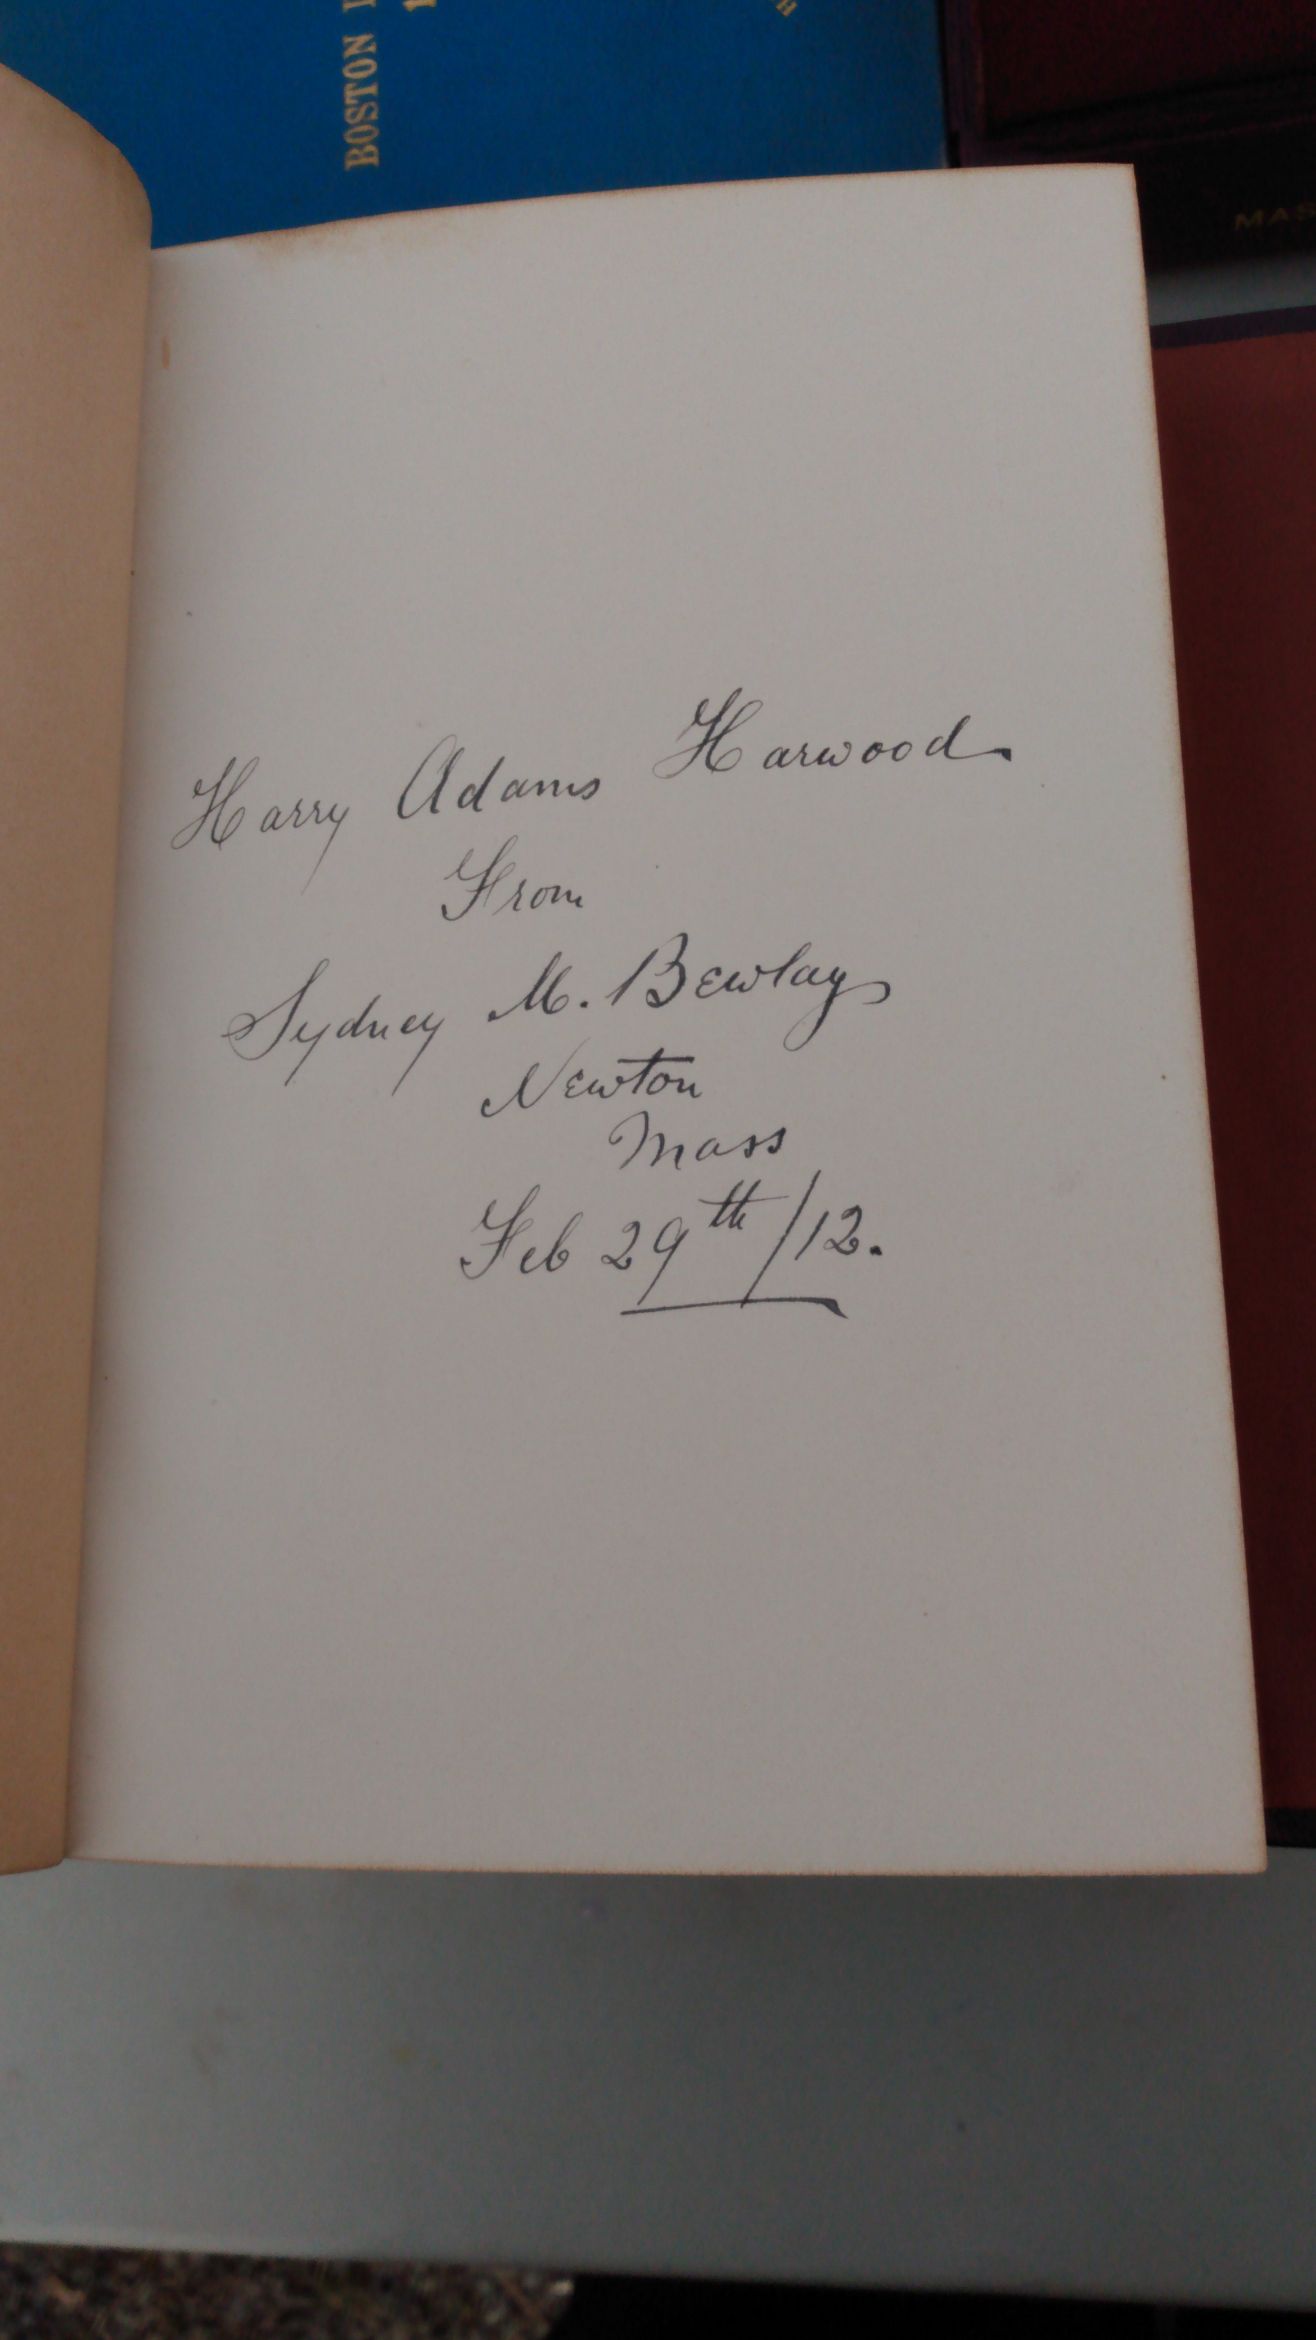 BOSTON
MAS
Harry Adams Harwood.
From
Sydney M. Bewlay
Newton
Mass
Feb 29th/12.